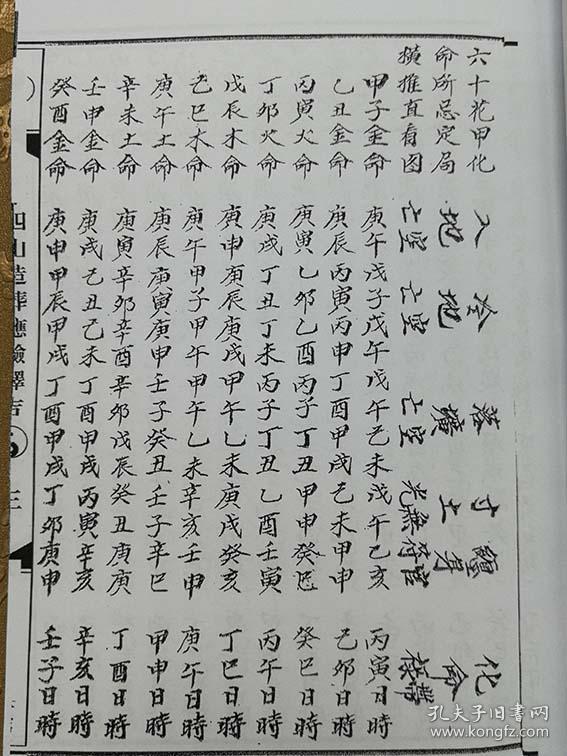 六十花甲化
命所忌定局
橫推直看图
入地亡空
冷地亡空
落壙亡空
寸土无光
化命
甲子金命 庚午戊子戊午戊午己未戊午己亥 丙寅日時
乙丑金命 庚辰丙寅丙申丁酉甲戌己未甲申 己卯日時
丙寅火命 庚寅乙卯乙酉丙子丁丑甲申癸巳 癸巳日時
丁卯火命 庚戌丁丑丁未丙子丁丑乙酉壬寅 丙午日時
戊辰木命 庚申庚辰庚戌甲午乙未庚戌癸亥 丁巳日時
己巳木命 庚午甲子甲午甲午乙未辛亥壬申 庚午日時
庚午土命 庚辰庚寅庚申壬子癸丑壬子辛巳 甲申日時
辛未土命 庚寅辛卯辛酉辛卯戊辰癸丑庚庚 丁酉日時
壬申金命 庚戌己丑己未丁酉甲戌丙寅辛亥 辛亥日時
癸酉金命 庚申甲辰甲戌丁酉甲戌丁卯庚申 壬子日時
四山造葬應驗擇吉
三
孔夫子旧书网
www.kongfz.com